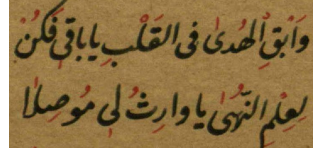 وَابْقِ الْهُدىٰ فى القَلْبِ يا باقى فَكُنْ
لِعِلْمِ النُّهىٰ يا وارِثُ لى مُوصِلًا